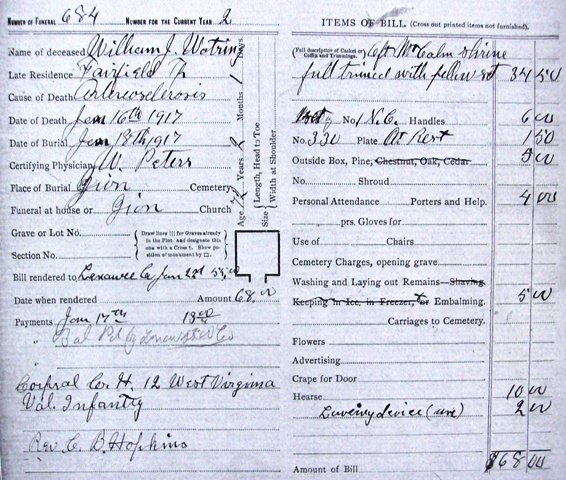 NUMBER OF FUNERAL 684 NUMBER FOR THE CURRENT YEAR 2
Name of deceased William J. Wotring
Late Residence Fairfield Tp
Cause of Death Arteriosclerosis
Date of Death Jan 16th 1917
Date of Burial Jan 18th 1917
Certifying Physician W. Peters
Place of Burial Zion Cemetery
Funeral at house or Zion Church
Grave or Lot No.
Section No.
Draw lines ||| for Graves already in the Plot and designate this one with a Cross †. Show position of monument by □.
Age Years Months Days
Size { Length, Head to Toe
Width at Shoulder
Bill rendered to Lenawee Co Jan 22d
Date when rendered Amount 68.00
Payments Jan 17th 18 00
" Bal Pd by Lenawee Co
"
Corpral Co. H. 12 West Virginia
Val. Infantry
Rev. C. B. Hopkins
ITEMS OF BILL. (Cross out printed items not furnished).
(Full description of Casket or Coffin and Trimmings.) Shrine
full trimed with 34 50
No. N.C. Handles 6 00
No. 330 Plate At Rest 1 50
Outside Box, Pine, Chestnut, Oak, Cedar 5 00
No. Shroud
Personal Attendance Porters and Help. 4 00
prs. Gloves for
Use of Chairs
Cemetery Charges, opening grave
Washing and Laying out Remains—Shaving
Keeping in Ice, in Freezer, or Embalming. 5 00
Carriages to Cemetery.
Flowers
Advertising
Crape for Door
Hearse 10 00
Lowering device (use) 2 00
Amount of Bill $68 00